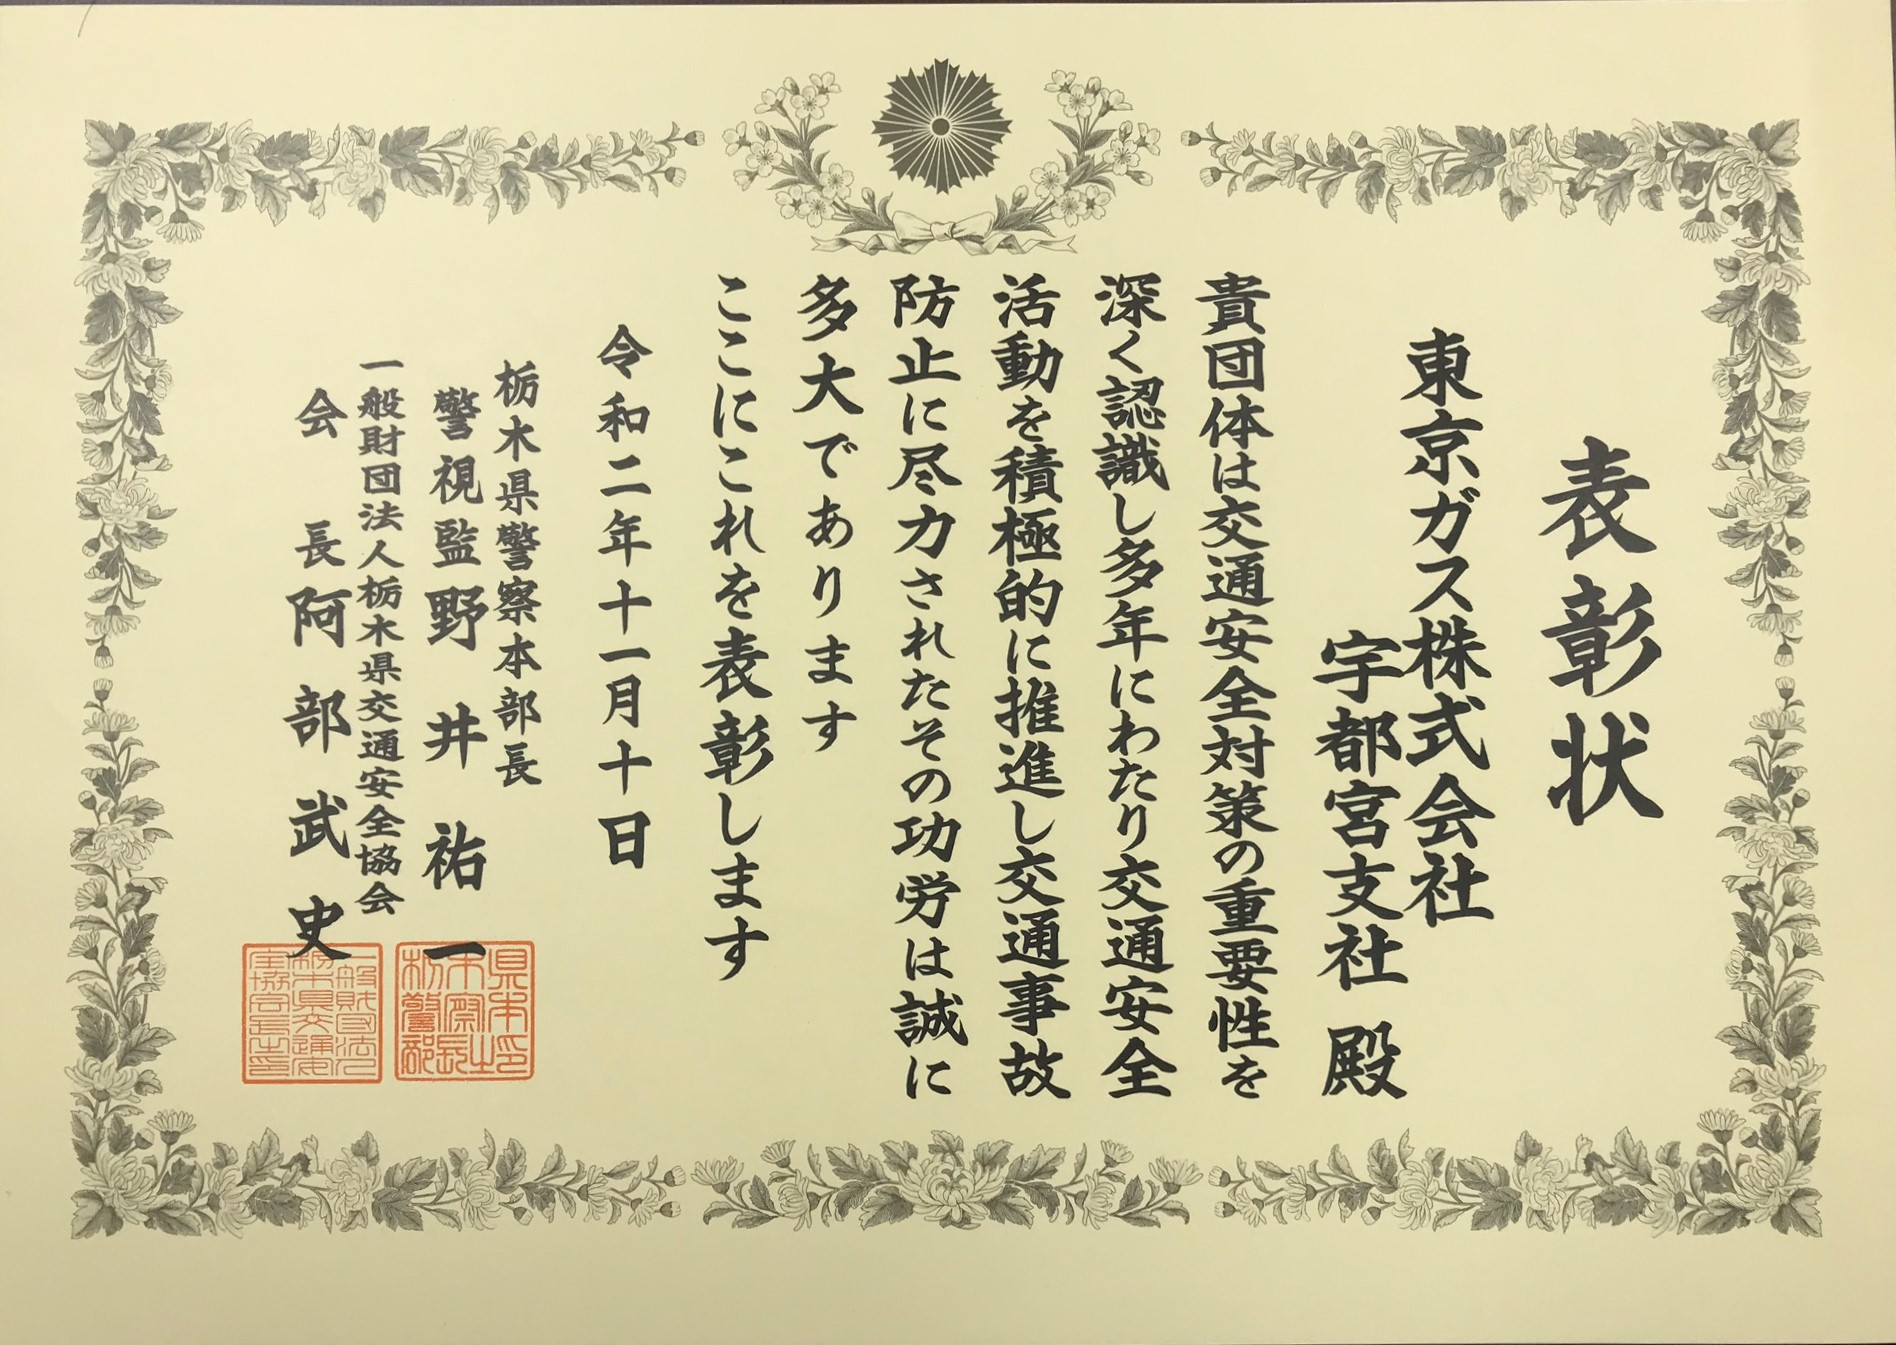 表彰状
東京ガス株式会社
宇都宮支社 殿
貴団体は交通安全対策の重要性を
深く認識し多年にわたり交通安全
活動を積極的に推進し交通事故
防止に尽力されたその功労は誠に
多大であります
ここにこれを表彰します
令和二年十一月十日
栃木県警察本部長
警視監 野井祐一
一般財団法人栃木県交通安全協会
会長 阿部武史
県本印
木察長之
栃警部
一般財団法人
栃木県交通安
全協会長之印